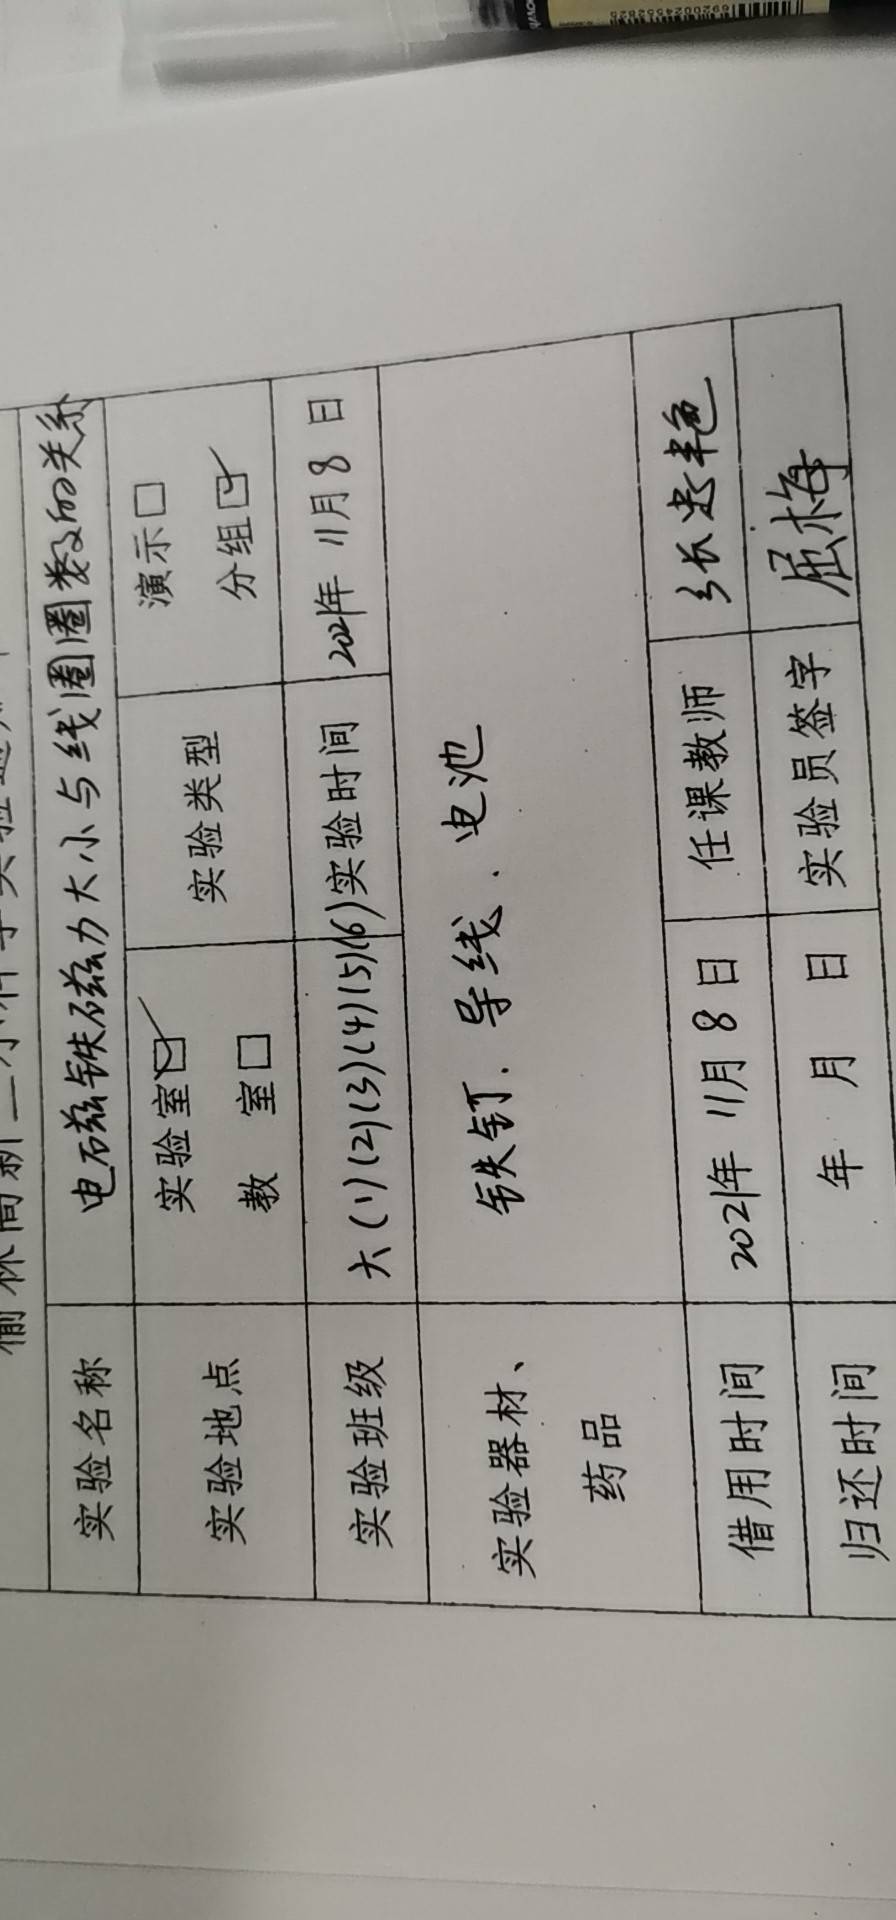 榆林高新二小科学实验通知单
实验名称 电磁铁磁力大小与线圈圈数的关系
实验地点 实验室☑ 实验类型 演示□
教 室□ 分组☑
实验班级 六(1)(2)(3)(4)(5)(6) 实验时间 2021年 11月 8日
实验器材、 铁钉、导线、电池
药品
借用时间 2021年 11月 8日 任课教师 张
归还时间 年 月 日 实验员签字 屈梅